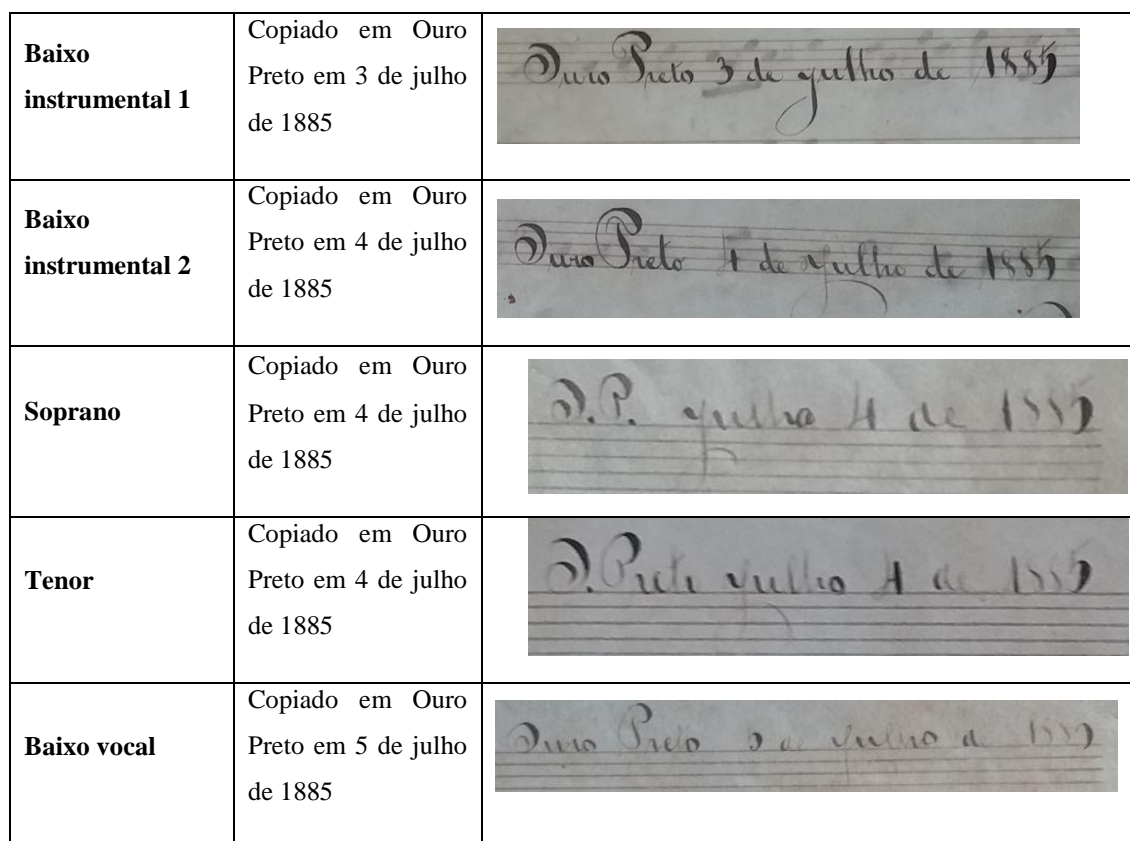 Baixo
instrumental 1
Copiado em Ouro
Preto em 3 de julho
de 1885
Ouro Preto 3 de julho de 1885
Baixo
instrumental 2
Copiado em Ouro
Preto em 4 de julho
de 1885
Ouro Preto 4 de julho de 1885
Soprano
Copiado em Ouro
Preto em 4 de julho
de 1885
O.P. julho 4 de 1885
Tenor
Copiado em Ouro
Preto em 4 de julho
de 1885
O. Preto julho 4 de 1885
Baixo vocal
Copiado em Ouro
Preto em 5 de julho
de 1885
Ouro Preto 5 de julho de 1885